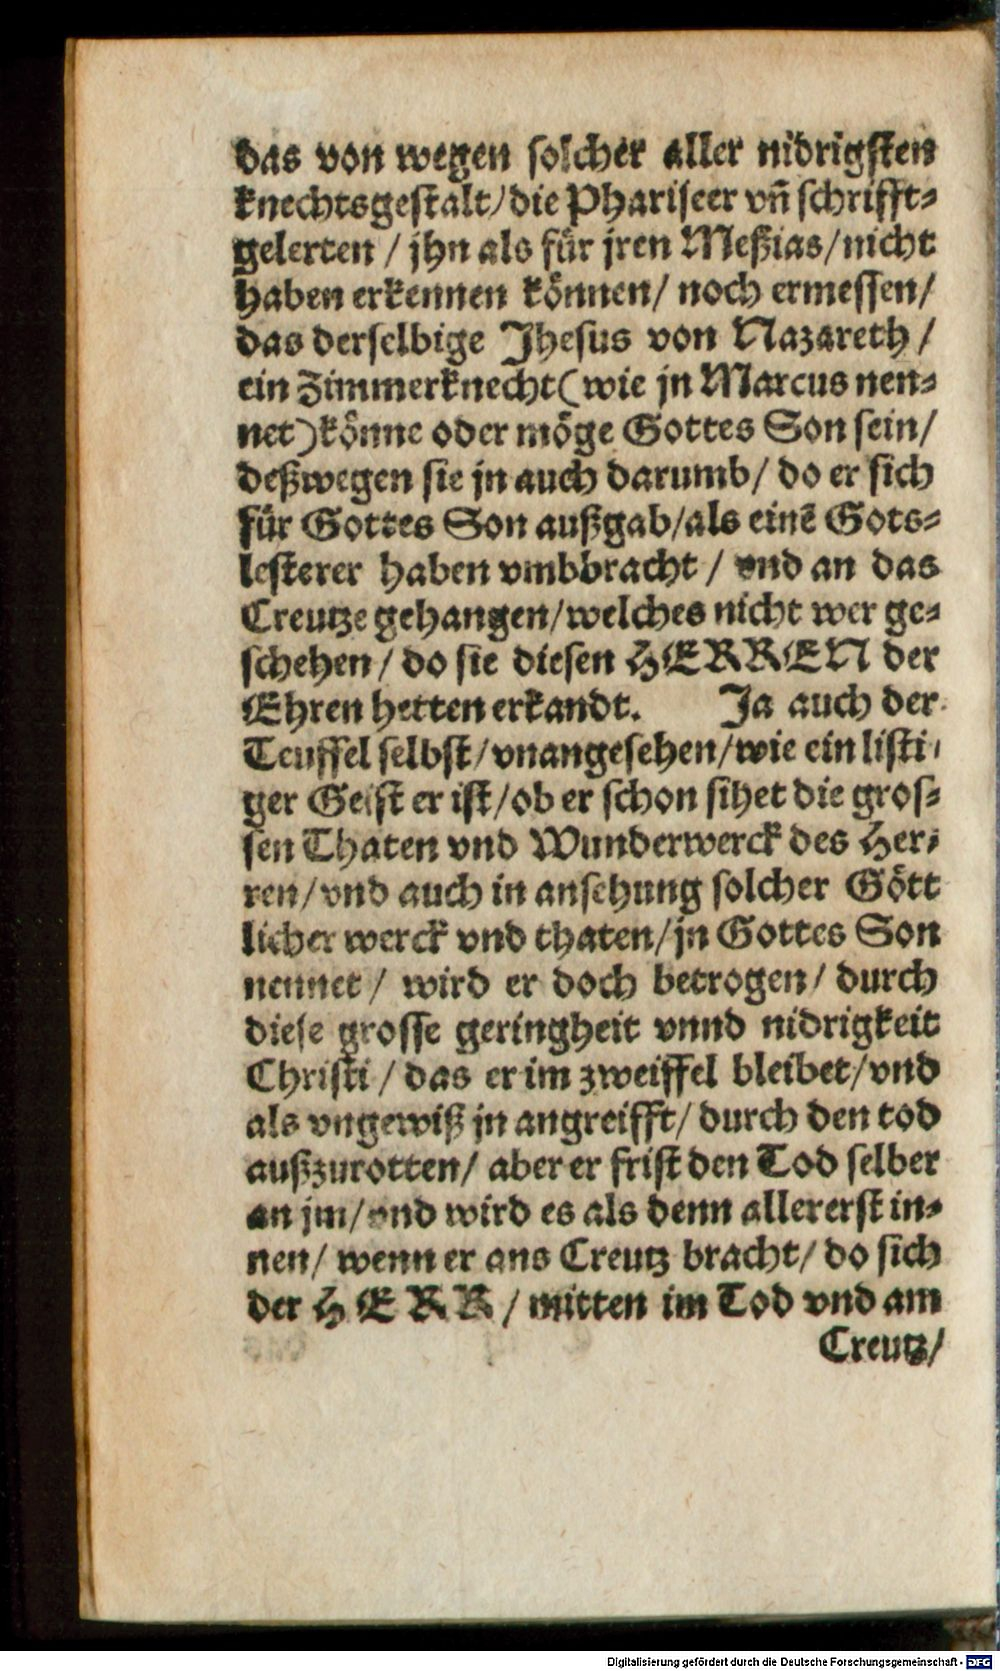 das von wegen solcher aller nidrigsten
knechtsgestalt/die Phariseer vñ schrifft-
gelerten / jhn als für jren Meßias/nicht
haben erkennen können/ noch ermessen/
das derselbige Jhesus von Nazareth /
ein Zimmerknecht(wie jn Marcus nen-
net)könne oder möge Gottes Son sein/
deßwegen sie jn auch darumb/ do er sich
für Gottes Son außgab/als einẽ Gots-
lesterer haben vmbbracht / vnd an das
Creutze gehangen/welches nicht wer ge-
schehen/ do sie diesen HERREN der
Ehren hetten erkandt. Ja auch der
Teuffel selbst/vnangesehen/wie ein listi-
ger Geist er ist/ob er schon sihet die gros-
sen Thaten vnd Wunderwerck des Her-
ren/vnd auch in ansehung solcher Gött
licher werck vnd thaten/jn Gottes Son
nennet/ wird er doch betrogen/ durch
diese grosse geringheit vnnd nidrigkeit
Christi / das er im zweiffel bleibet/vnd
als vngewiß jn angreifft/ durch den tod
außzurotten/ aber er frist den Tod selber
an jm/vnd wird es als denn allererst in-
nen/ wenn er ans Creutz bracht/ do sich
der HERR / mitten im Tod vnd am
Creutz/
Digitalisierung gefördert durch die Deutsche Forschungsgemeinschaft - DFG